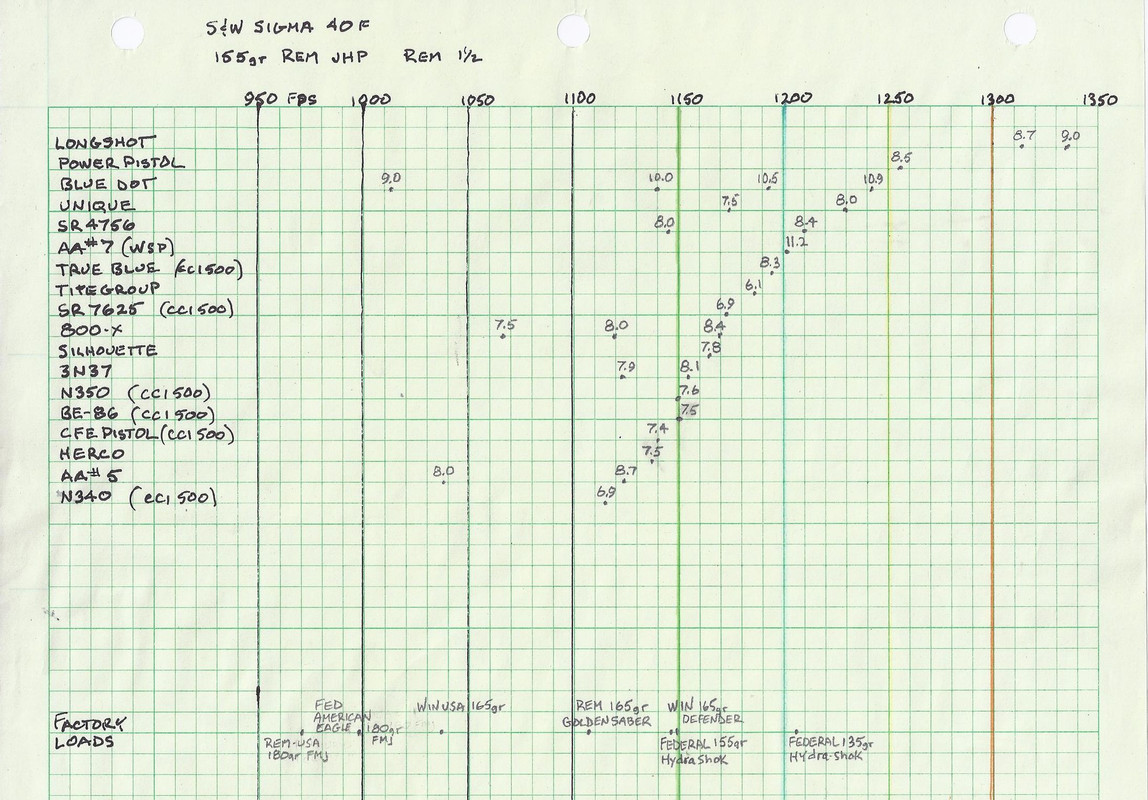 S&W SIGMA 40F
155gr REM JHP REM 1½
950 FPS 1000 1050 1100 1150 1200 1250 1300 1350
LONGSHOT 8.7 9.0
POWER PISTOL 8.5
BLUE DOT 9.0 10.0 10.5 10.9
UNIQUE 7.5 8.0
SR4756 8.0 8.4
AA#7 (WSP) 11.2
TRUE BLUE (CCI500) 8.3
TITEGROUP 6.1
SR7625 (CCI500) 6.9
800-X 7.5 8.0 8.4
SILHOUETTE 7.8
3N37 7.9 8.1
N350 (CCI500) 7.6
BE-86 (CCI500) 7.5
CFE PISTOL (CCI500) 7.4
HERCO 7.5
AA#5 8.0 8.7
N340 (CCI500) 6.9
FACTORY
LOADS
REM-USA
180gr FMJ
FED
AMERICAN
EAGLE 180gr
FMJ
WIN USA 165gr
REM 165gr
GOLDEN SABER
WIN 165gr
DEFENDER
FEDERAL 155gr
Hydra Shok
FEDERAL 135gr
Hydra-Shok